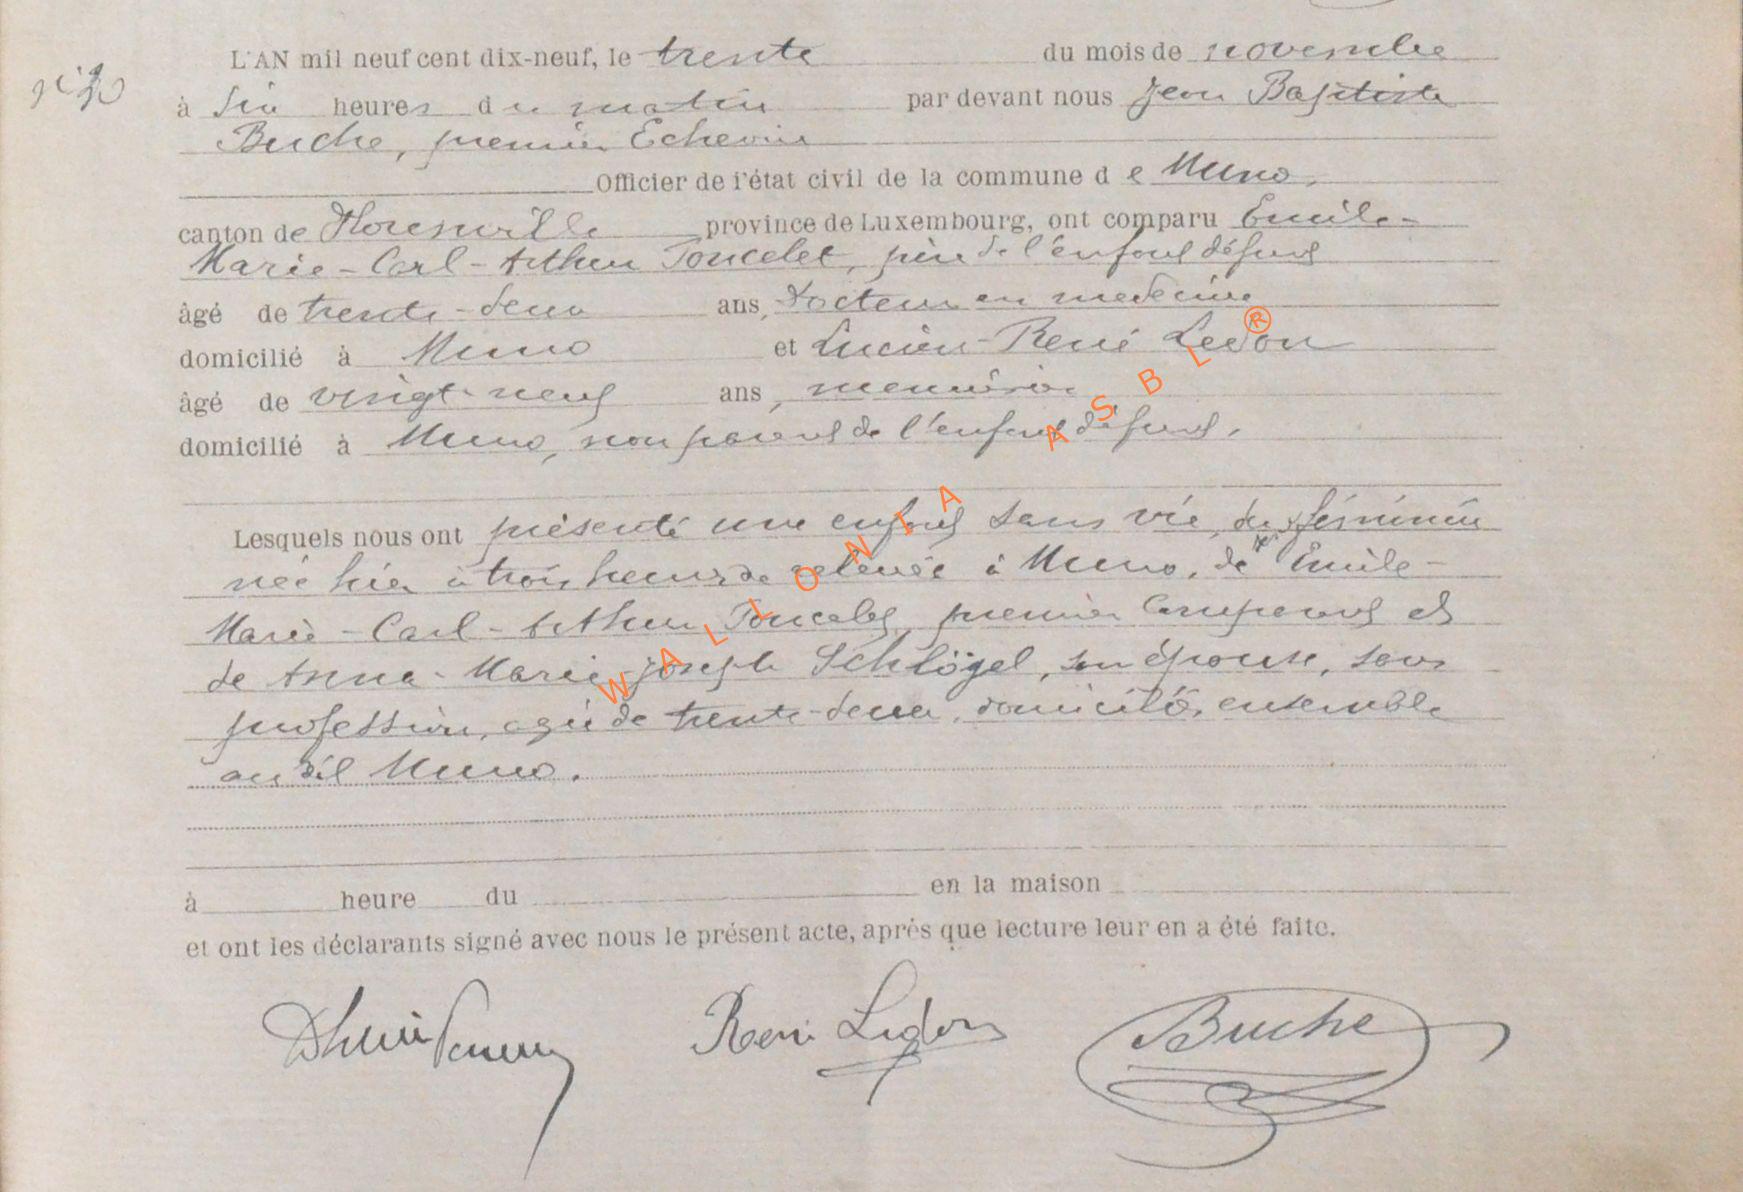 L'AN mil neuf cent dix-neuf, le trente du mois de novembre
à six heures du matin par devant nous Jean Baptiste
Buche, premier Echevin
Officier de l'état civil de la commune de Muno,
canton de Florenville province de Luxembourg, ont comparu Emile-
Marie-Carl-Arthur Poncelet, père de l'enfant défunt
âgé de trente-deux ans, Docteur en médecine
domicilié à Muno et Lucien-René Ledon
âgé de vingt-neuf ans, menuisier
domicilié à Muno, non parent de l'enfant défunt.
Lesquels nous ont présenté une enfant sans vie, du sexe féminin
née hier à trois heures de relevée à Muno, de Emile-
Marie-Carl-Arthur Poncelet premier comparant et
de Anna-Marie Joseph Schlögel, son épouse, sans
profession, agée de trente-deux, domiciliés ensemble
au dit Muno.
à heure du en la maison
et ont les déclarants signé avec nous le présent acte, après que lecture leur en a été faite.
René Ledon Buche
WALLONIA ASBL ®